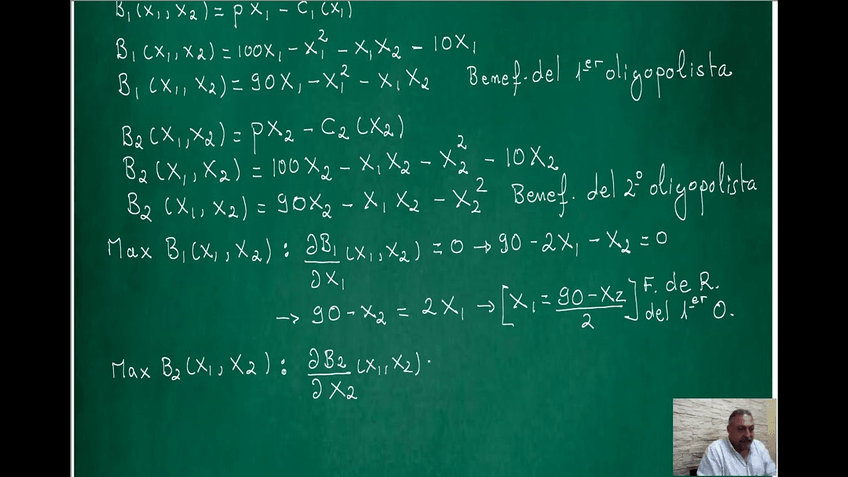 B₁(x₁,x₂)= px₁ - C₁(x₁)
B₁(x₁,x₂)=100x₁-x₁²-x₁x₂ - 10x₁
B₁(x₁,x₂)= 90x₁-x₁²-x₁x₂ Benef. del 1er oligopolista
B₂(x₁,x₂)=px₂-C₂(x₂)
B₂(x₁,x₂)=100x₂-x₁x₂-x₂² - 10x₂
B₂(x₁,x₂)=90x₂-x₁x₂-x₂² Benef. del 2º oligopolista
Max B₁(x₁,x₂): ∂B₁/∂x₁ (x₁,x₂)=0 → 90-2x₁-x₂=0
→ 90-x₂ = 2x₁ → [x₁ = (90-x₂)/2] F. de R. del 1er O.
Max B₂(x₁,x₂): ∂B₂/∂x₂ (x₁,x₂)